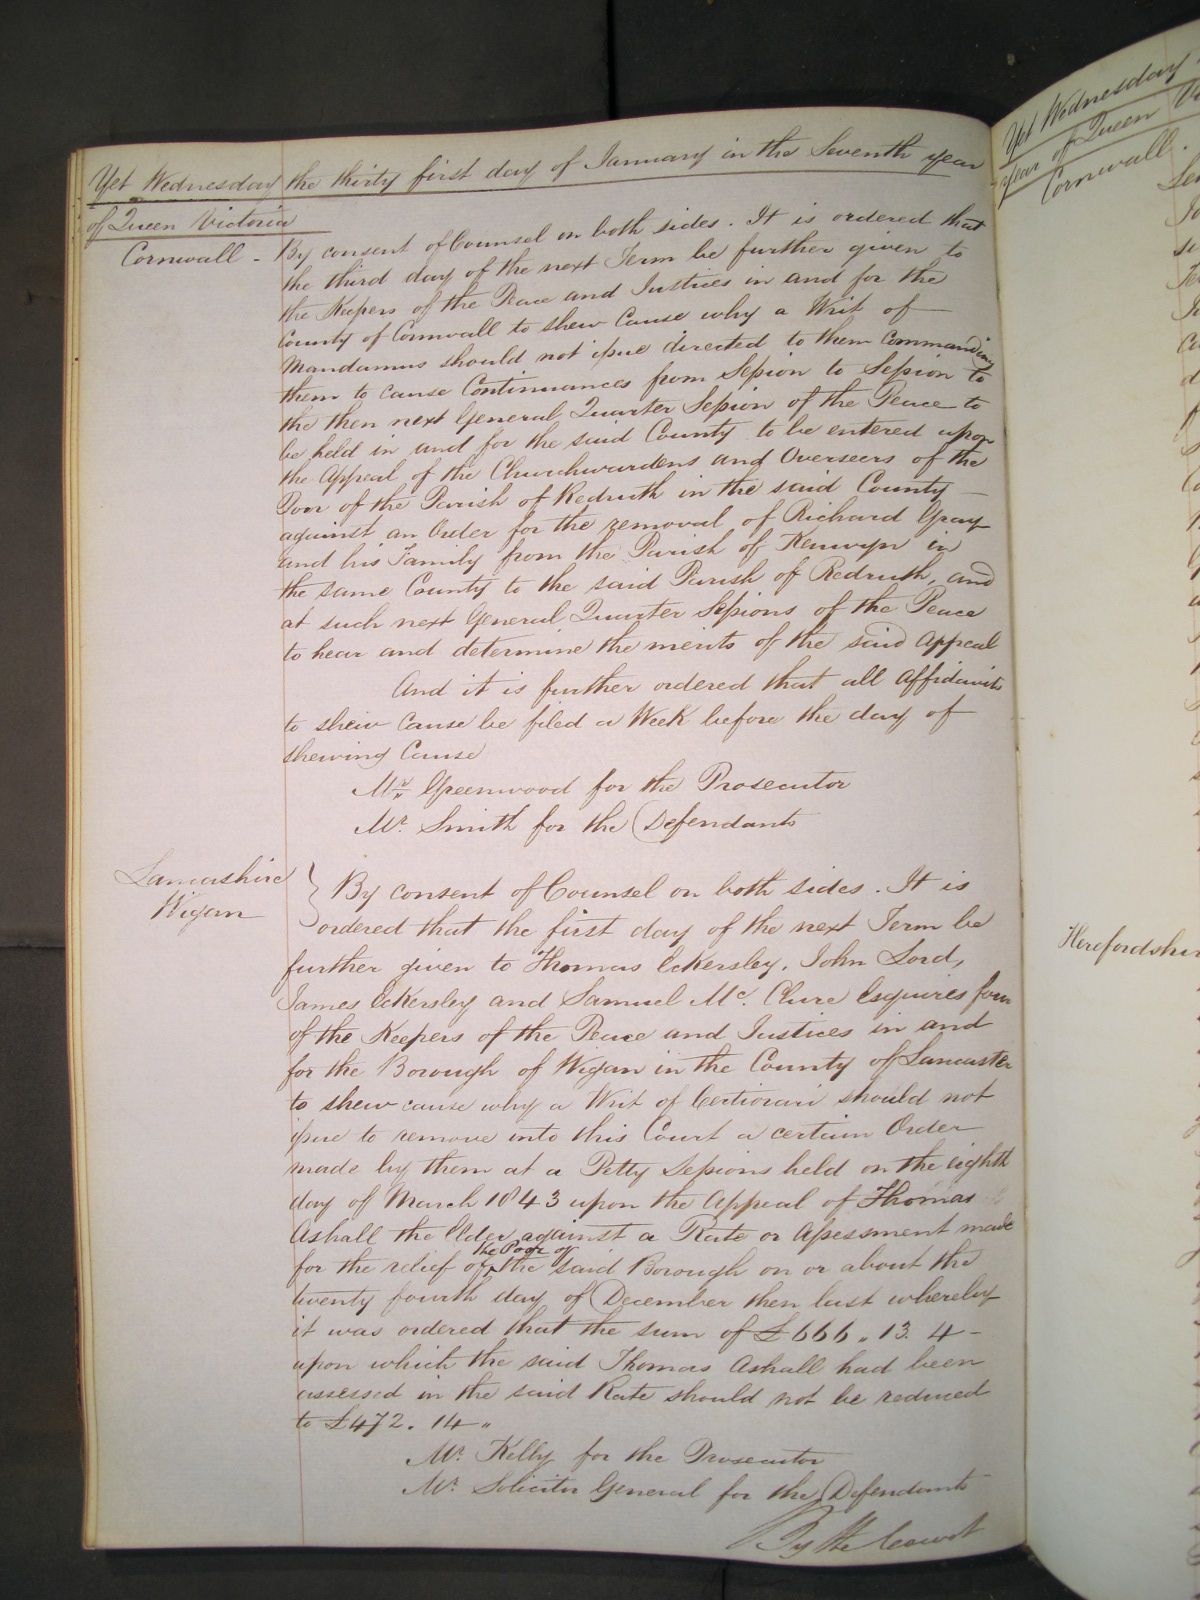 Yet Wednesday the thirty first day of January in the Seventh year
of Queen Victoria
Cornwall - By consent of Counsel on both sides. It is ordered that
the third day of the next Term be further given to
the Keepers of the Peace and Justices in and for the
County of Cornwall to shew Cause why a Writ of
Mandamus should not issue directed to them Commanding
them to cause Continuances from Session to Session to
the then next General Quarter Session of the Peace to
be held in and for the said County to be entered upon
the Appeal of the Churchwardens and Overseers of the
Poor of the Parish of Redruth in the said County
against an Order for the removal of Richard Gray
and his Family from the Parish of Kenwyn in
the same County to the said Parish of Redruth, and
at such next General Quarter Sessions of the Peace
to hear and determine the merits of the said Appeal
And it is further ordered that all Affidavits
to shew Cause be filed a Week before the day of
shewing Cause
Mr. Greenwood for the Prosecutor
Mr. Smith for the Defendants
Lancashire
Wigan
By consent of Counsel on both sides. It is
ordered that the first day of the next Term be
further given to Thomas Eckersley, John Lord,
James Eckersley and Samuel Mc. Clure Esquires four
of the Keepers of the Peace and Justices in and
for the Borough of Wigan in the County of Lancaster
to shew cause why a Writ of Certiorari should not
issue to remove into this Court a certain Order
made by them at a Petty Sessions held on the eighth
day of March 1843 upon the Appeal of Thomas
Ashall the Elder against a Rate or Assessment made
for the relief of the Poor of the said Borough on or about the
twenty fourth day of December then last whereby
it was ordered that the sum of £666 " 13. 4 -
upon which the said Thomas Ashall had been
assessed in the said Rate should not be reduced
to £472. 14 "
Mr. Kelly for the Prosecutor
Mr. Solicitor General for the Defendants
By the Court
Yet Wednesday
year of Queen
Cornwall.
Herefordshir